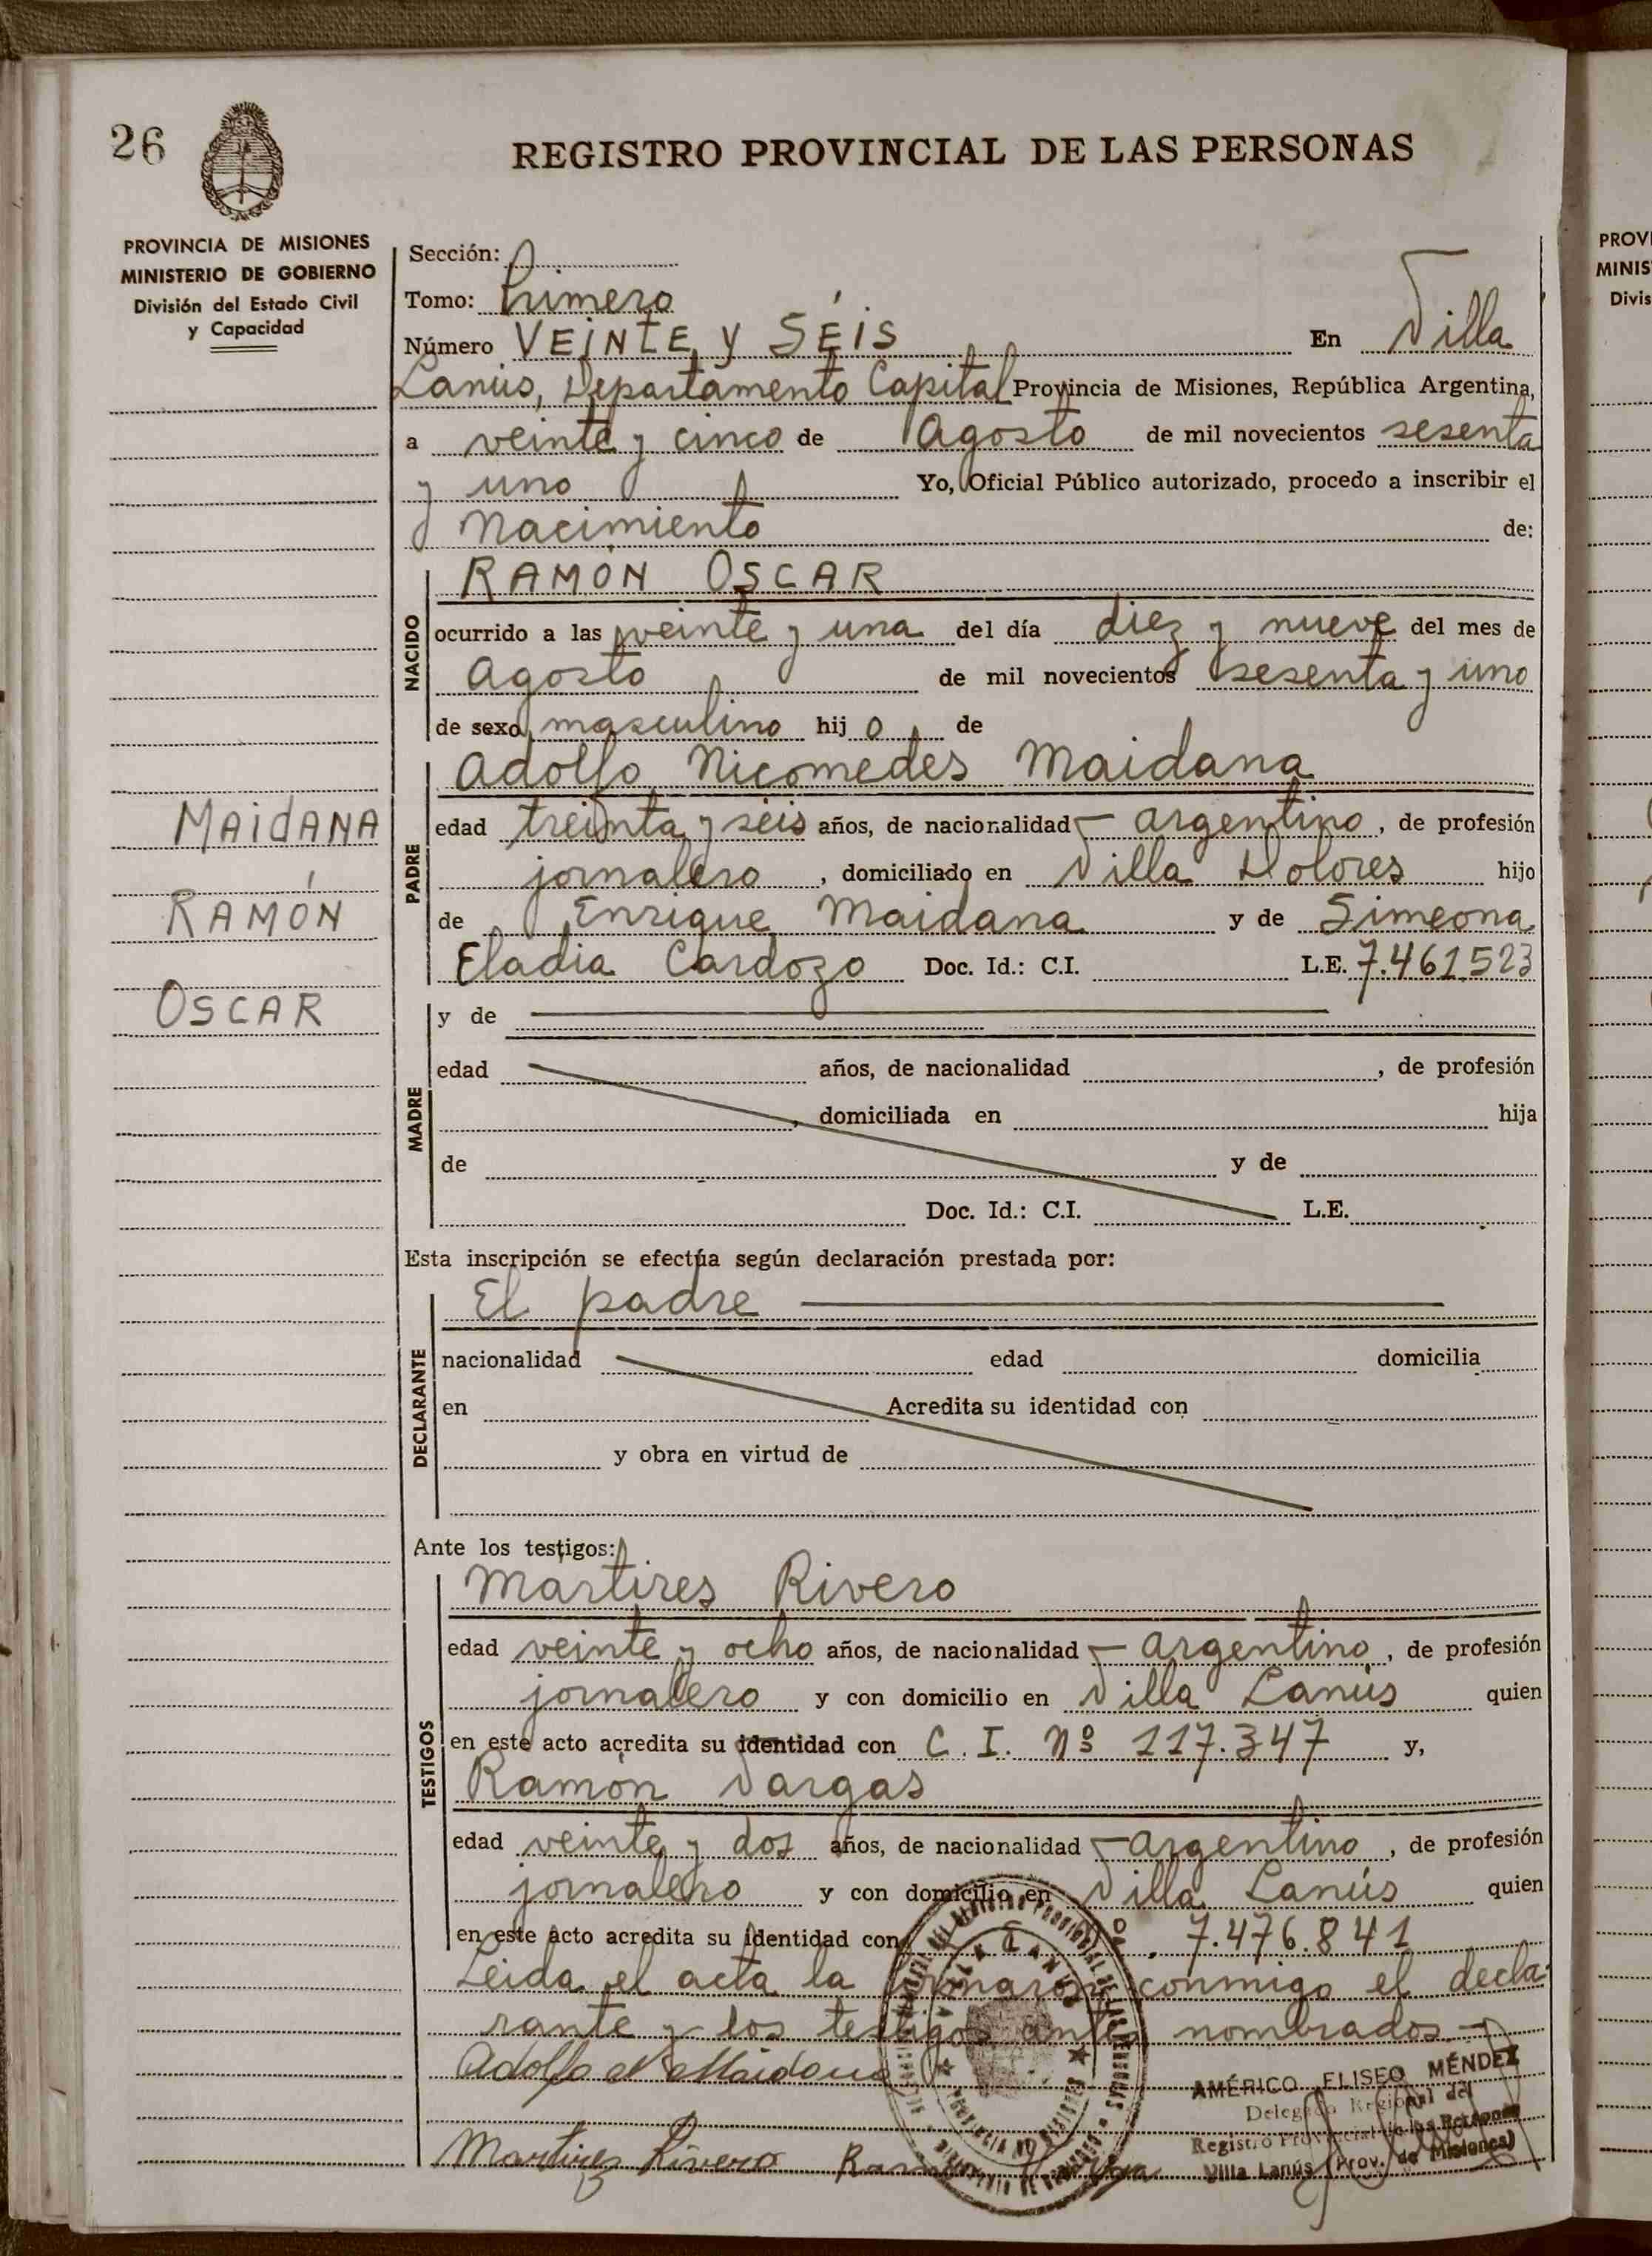 26
REGISTRO PROVINCIAL DE LAS PERSONAS
PROVINCIA DE MISIONES
MINISTERIO DE GOBIERNO
División del Estado Civil
y Capacidad
Sección:
Tomo: Primero
Número VEINTE Y SÉIS En Villa
Lanús, Departamento Capital Provincia de Misiones, República Argentina,
a veinte y cinco de Agosto de mil novecientos sesenta
y uno Yo, Oficial Público autorizado, procedo a inscribir el
Nacimiento de:
NACIDO
RAMÓN OSCAR
ocurrido a las veinte y una del día diez y nueve del mes de
Agosto de mil novecientos sesenta y uno
de sexo masculino hijo de
PADRE
Adolfo Nicomedes Maidana
MAIDANA
edad treinta y seis años, de nacionalidad argentino, de profesión
jornalero, domiciliado en Villa Dolores hijo
RAMÓN
de Enrique Maidana y de Simeona
Eladia Cardozo Doc. Id.: C.I. L.E. 7.461.523
OSCAR
MADRE
y de
edad años, de nacionalidad , de profesión
, domiciliada en hija
de y de
Doc. Id.: C.I. L.E.
Esta inscripción se efectúa según declaración prestada por:
DECLARANTE
El padre
nacionalidad edad domicilia
en Acredita su identidad con
y obra en virtud de
Ante los testigos:
TESTIGOS
Martires Rivero
edad veinte y ocho años, de nacionalidad argentino, de profesión
jornalero y con domicilio en Villa Lanús quien
en este acto acredita su identidad con C. I. Nº 117.347 y,
Ramón Vargas
edad veinte y dos años, de nacionalidad argentino, de profesión
jornalero y con domicilio en Villa Lanús quien
en este acto acredita su identidad con 7.476.841
Leida el acta la firmaron conmigo el decla-
rante y los testigos antes nombrados.-
Adolfo N Maidana
AMÉRICO ELISEO MÉNDEZ
Delegado Regional del
Registro Provincial de las Personas
Villa Lanús (Prov. de Misiones)
Martirez Rivero Ramon
PROVI
MINIS
Divis